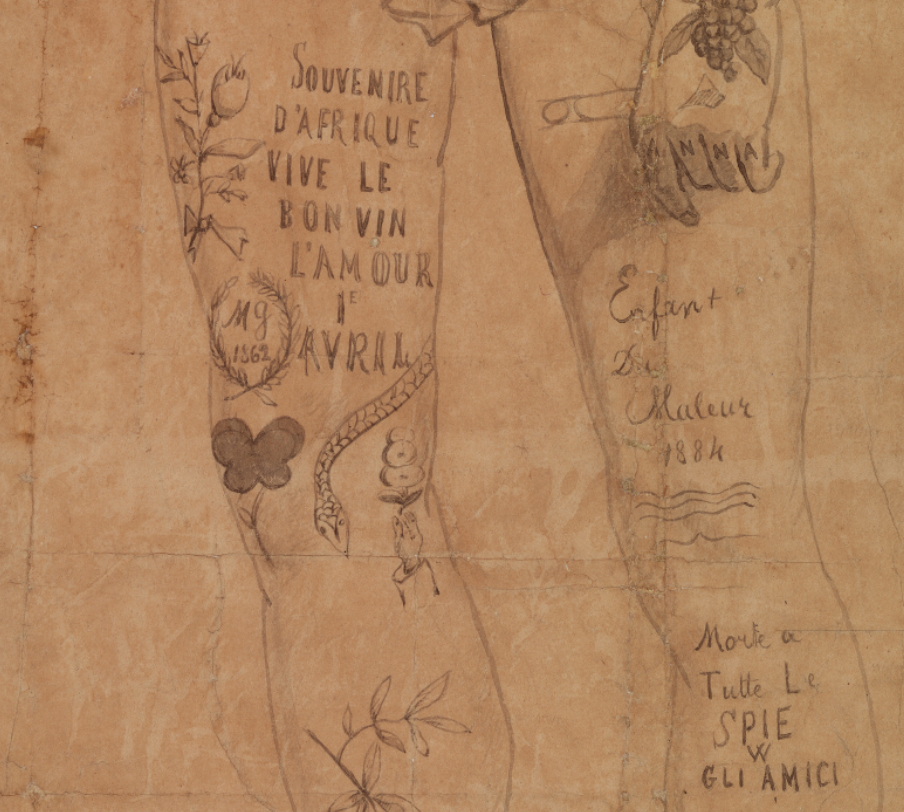 SOUVENIRE
D'AFRIQUE
VIVE LE
BON VIN
L'AMOUR
1E
AVRIL
MG
1862
ANNA
Enfant
Du
Maleur
1884
Morte a
Tutte Le
SPIE
W
GLI AMICI